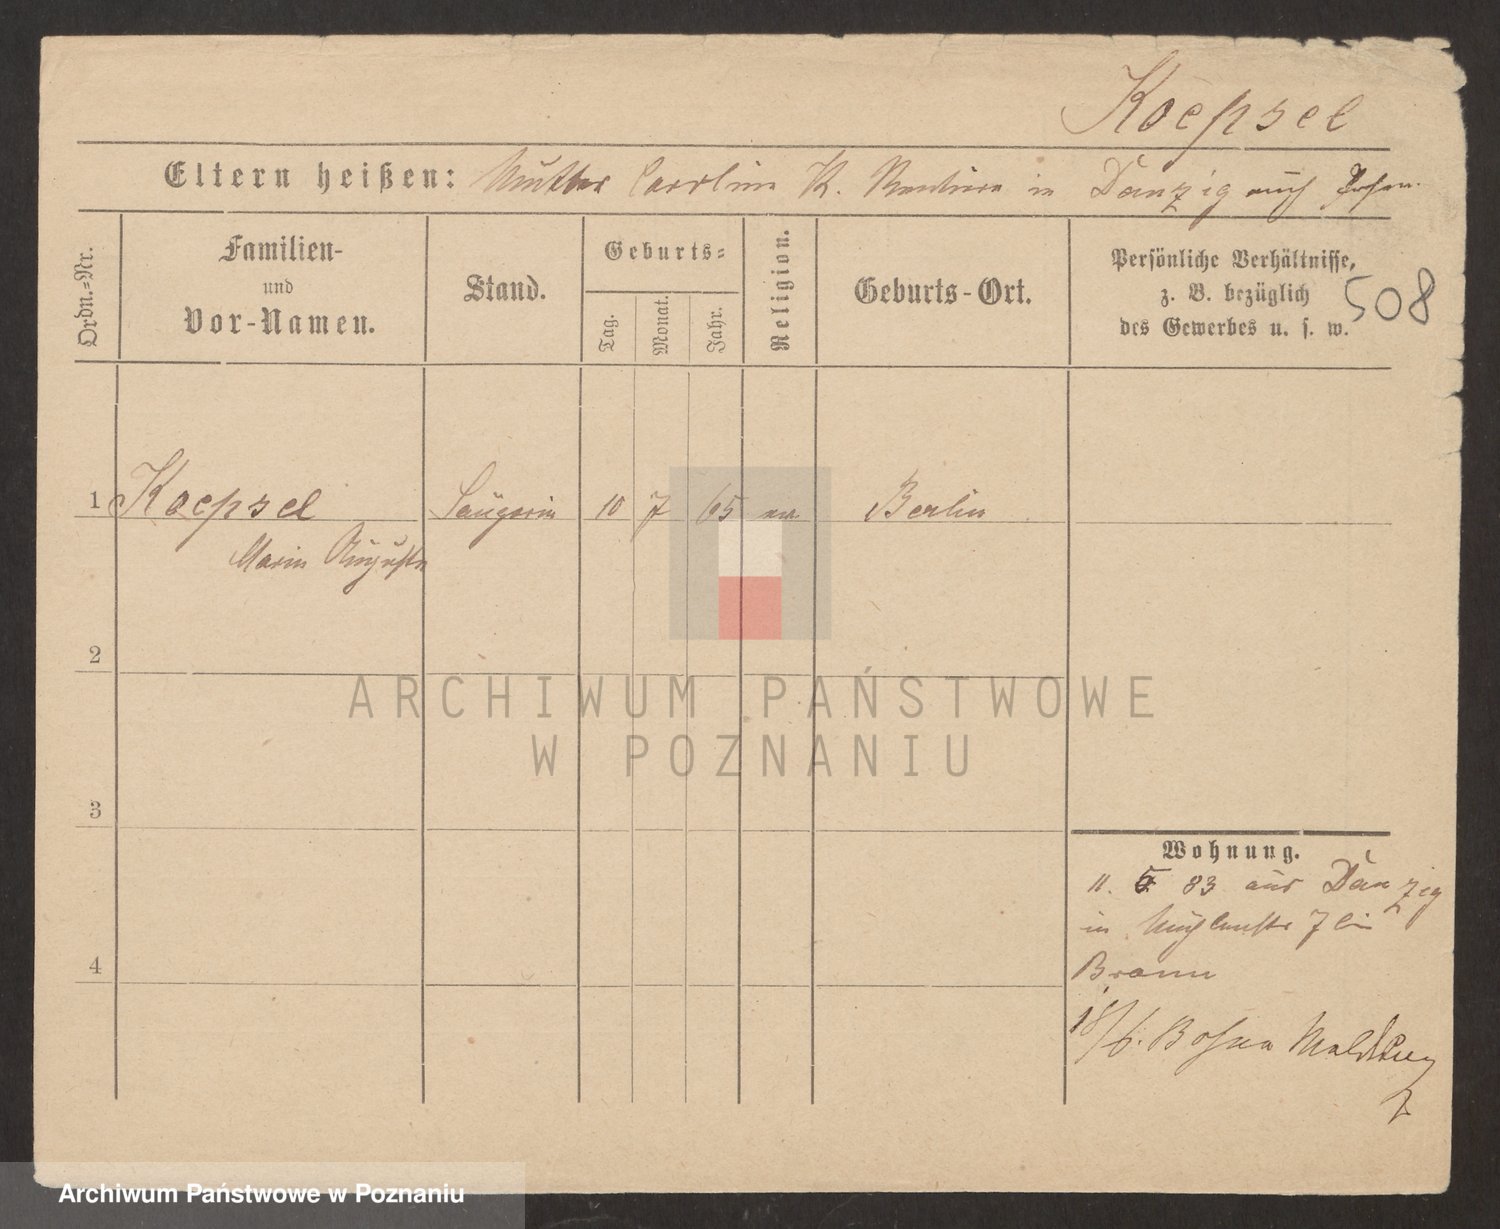 Koepsel
Eltern heißen: Mutter Caroline K. Rentiere in Danzig auch Posen
Ordn.=Nr.
Familien-
und
Vor-Namen.
Stand.
Geburts=
Tag.
Monat.
Jahr.
Religion.
Geburts-Ort.
Persönliche Verhältnisse,
z. B. bezüglich
des Gewerbes u. s. w.
508
1 Koepsel Sängerin 10 7 65 ev. Berlin
Marie Auguste
2
ARCHIWUM PAŃSTWOWE
W POZNANIU
3
Wohnung.
11. 5 83 aus Danzig
in 7 bei
4
18/6. Waldburg
Archiwum Państwowe w Poznaniu